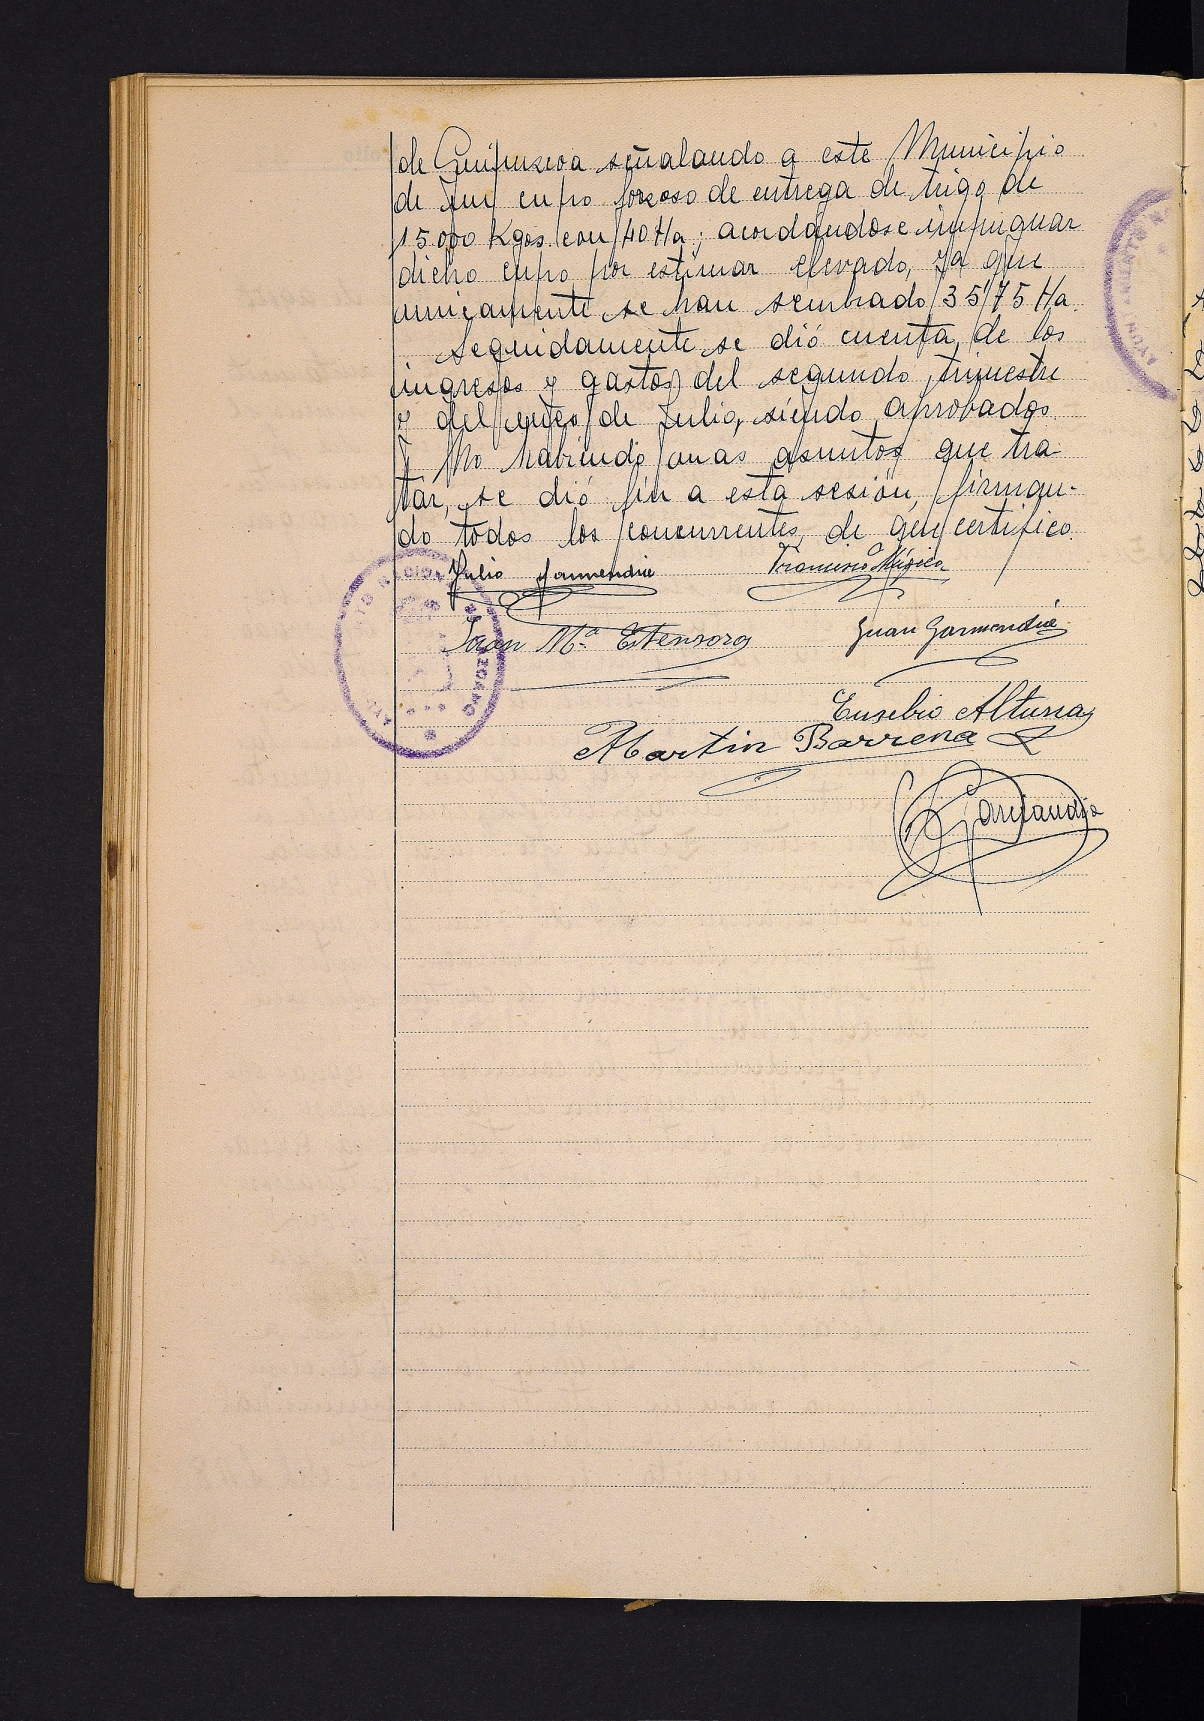 de Guipuzcoa señalando a este Municipio
de un cupo forzoso de entrega de trigo de
15.000 Kgos. con 40 Ha; acordandose impugnar
dicho cupo por estimar elevado, ya que
unicamente se han sembrado 35'75 Ha.
Seguidamente se dió cuenta de los
ingresos y gastos del segundo trimestre
y del mes de Julio, siendo aprobados.
Y no habiendo mas asuntos que tra
tar, se dió fin a esta sesión, firman-
do todos los concurrentes, de que certifico.
Julio Garmendia Francisco Múgica
Juan Mª Estensoro Juan Garmendia
Eusebio Altuna
Martin Barrena
AYUNTAMIENTO